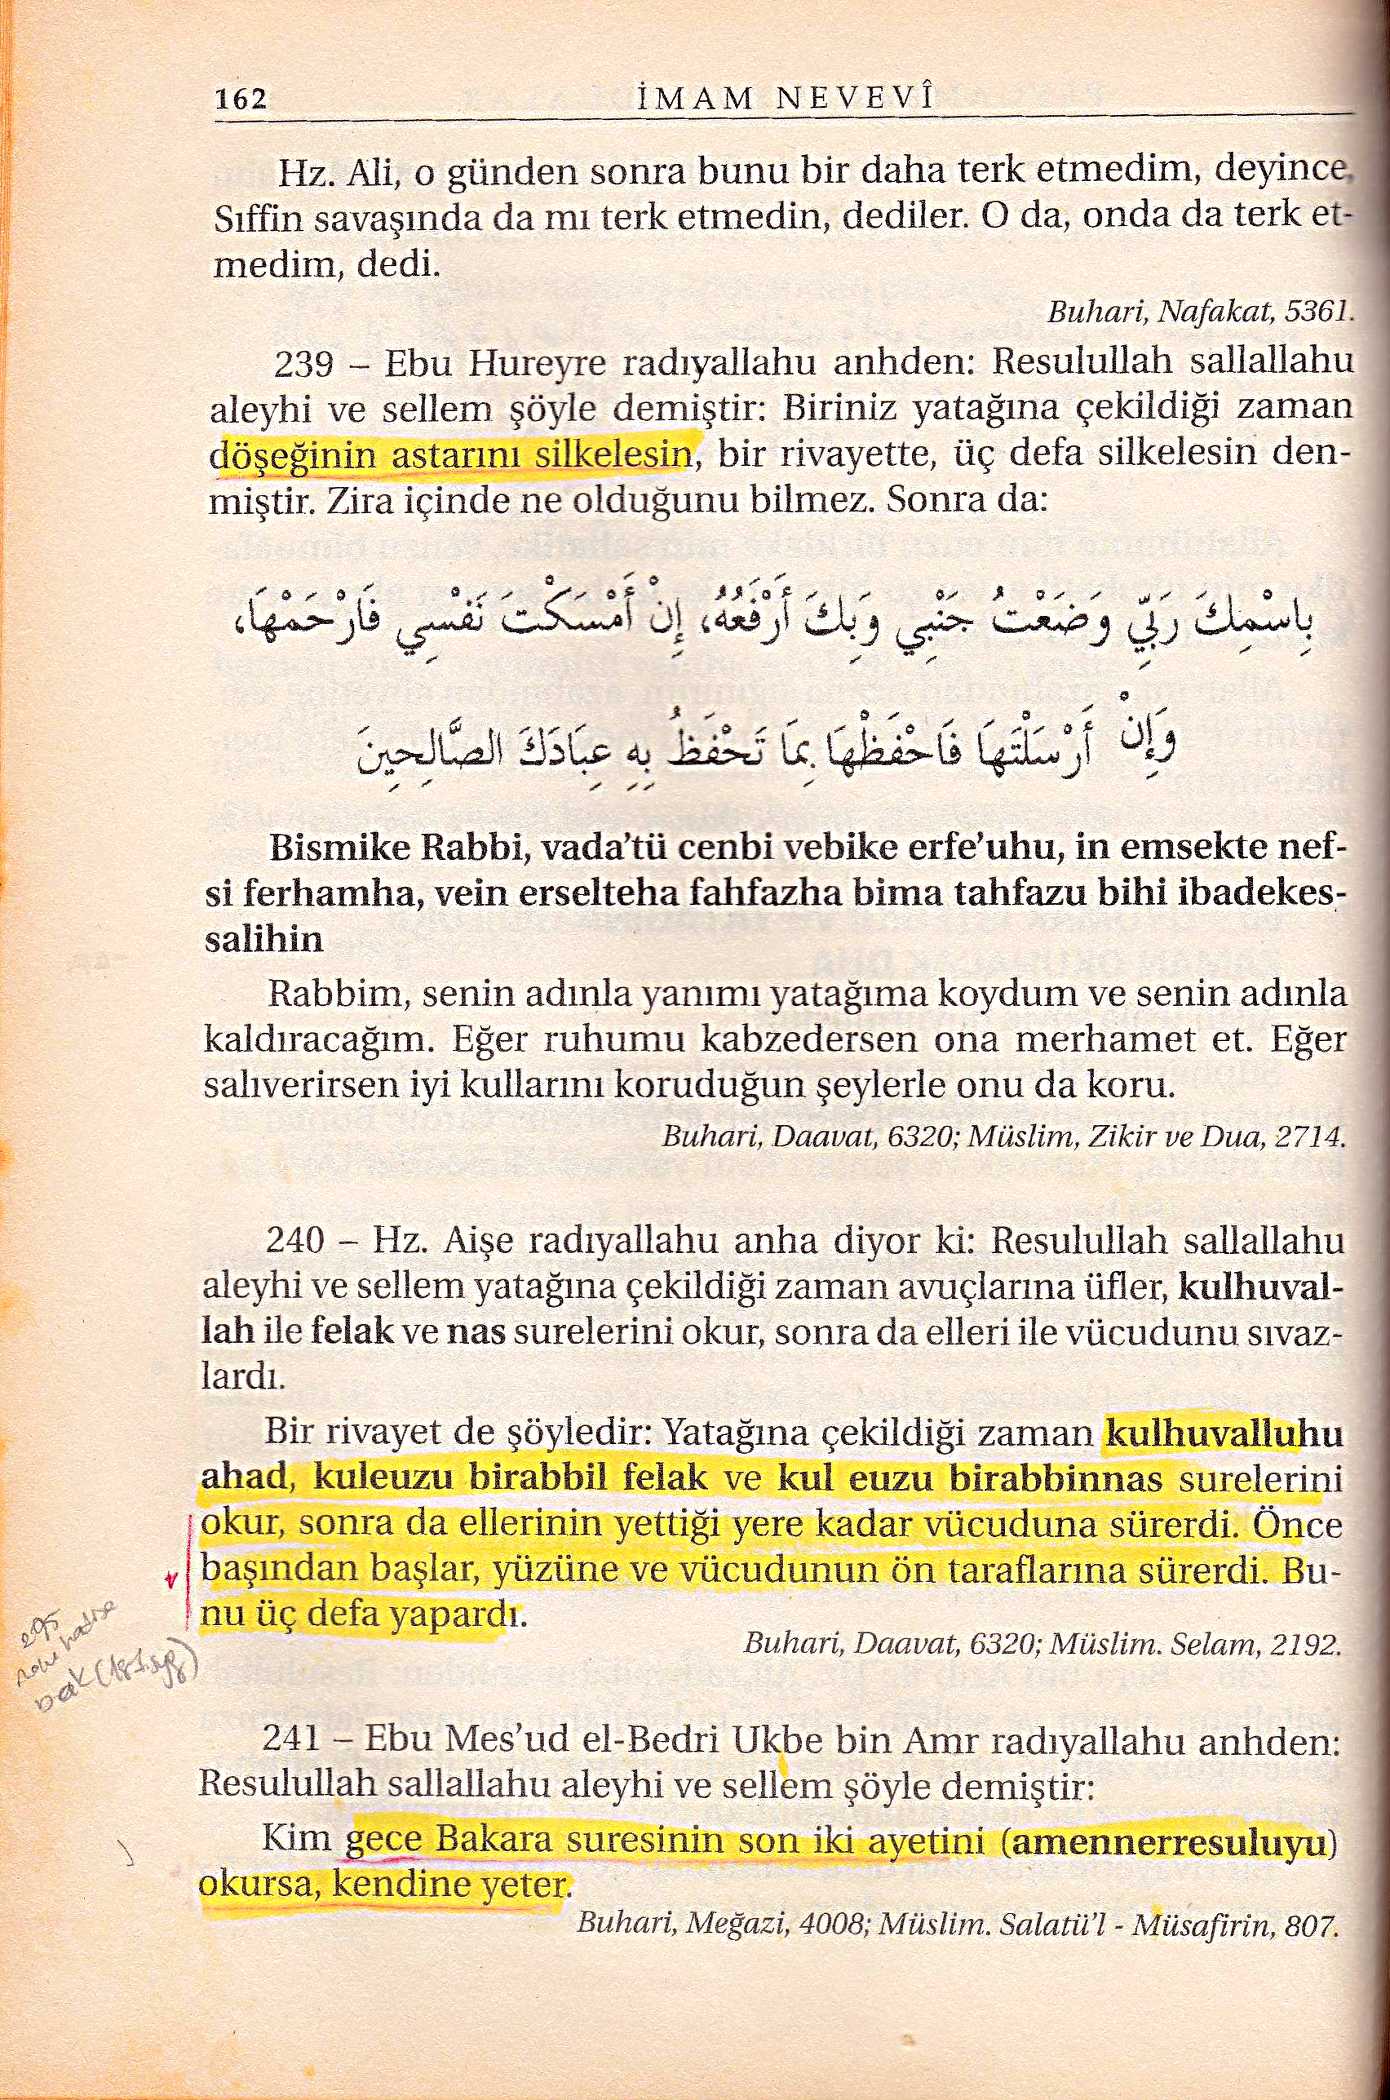 162
İMAM NEVEVÎ
Hz. Ali, o günden sonra bunu bir daha terk etmedim, deyince,
Sıffin savaşında da mı terk etmedin, dediler. O da, onda da terk et-
medim, dedi.
Buhari, Nafakat, 5361.
239 – Ebu Hureyre radıyallahu anhden: Resulullah sallallahu
aleyhi ve sellem şöyle demiştir: Biriniz yatağına çekildiği zaman
döşeğinin astarını silkelesin, bir rivayette, üç defa silkelesin den-
miştir. Zira içinde ne olduğunu bilmez. Sonra da:
بِاسْمِكَ رَبِّي وَضَعْتُ جَنْبِي وَبِكَ أَرْفَعُهُ، إِنْ أَمْسَكْتَ نَفْسِي فَارْحَمْهَا،
وَإِنْ أَرْسَلْتَهَا فَاحْفَظْهَا بِمَا تَحْفَظُ بِهِ عِبَادَكَ الصَّالِحِينَ
Bismike Rabbi, vada’tü cenbi vebike erfe’uhu, in emsekte nef-
si ferhamha, vein erselteha fahfazha bima tahfazu bihi ibadekes-
salihin
Rabbim, senin adınla yanımı yatağıma koydum ve senin adınla
kaldıracağım. Eğer ruhumu kabzedersen ona merhamet et. Eğer
salıverirsen iyi kullarını koruduğun şeylerle onu da koru.
Buhari, Daavat, 6320; Müslim, Zikir ve Dua, 2714.
240 – Hz. Aişe radıyallahu anha diyor ki: Resulullah sallallahu
aleyhi ve sellem yatağına çekildiği zaman avuçlarına üfler, kulhuval-
lah ile felak ve nas surelerini okur, sonra da elleri ile vücudunu sıvaz-
lardı.
Bir rivayet de şöyledir: Yatağına çekildiği zaman kulhuvalluhu
ahad, kuleuzu birabbil felak ve kul euzu birabbinnas surelerini
okur, sonra da ellerinin yettiği yere kadar vücuduna sürerdi. Önce
başından başlar, yüzüne ve vücudunun ön taraflarına sürerdi. Bu-
nu üç defa yapardı.
Buhari, Daavat, 6320; Müslim. Selam, 2192.
295
nolu hadise
bak (181.syf)
241 – Ebu Mes’ud el-Bedri Ukbe bin Amr radıyallahu anhden:
Resulullah sallallahu aleyhi ve sellem şöyle demiştir:
Kim gece Bakara suresinin son iki ayetini (amennerresuluyu)
okursa, kendine yeter.
Buhari, Meğazi, 4008; Müslim. Salatü’l - Müsafirin, 807.